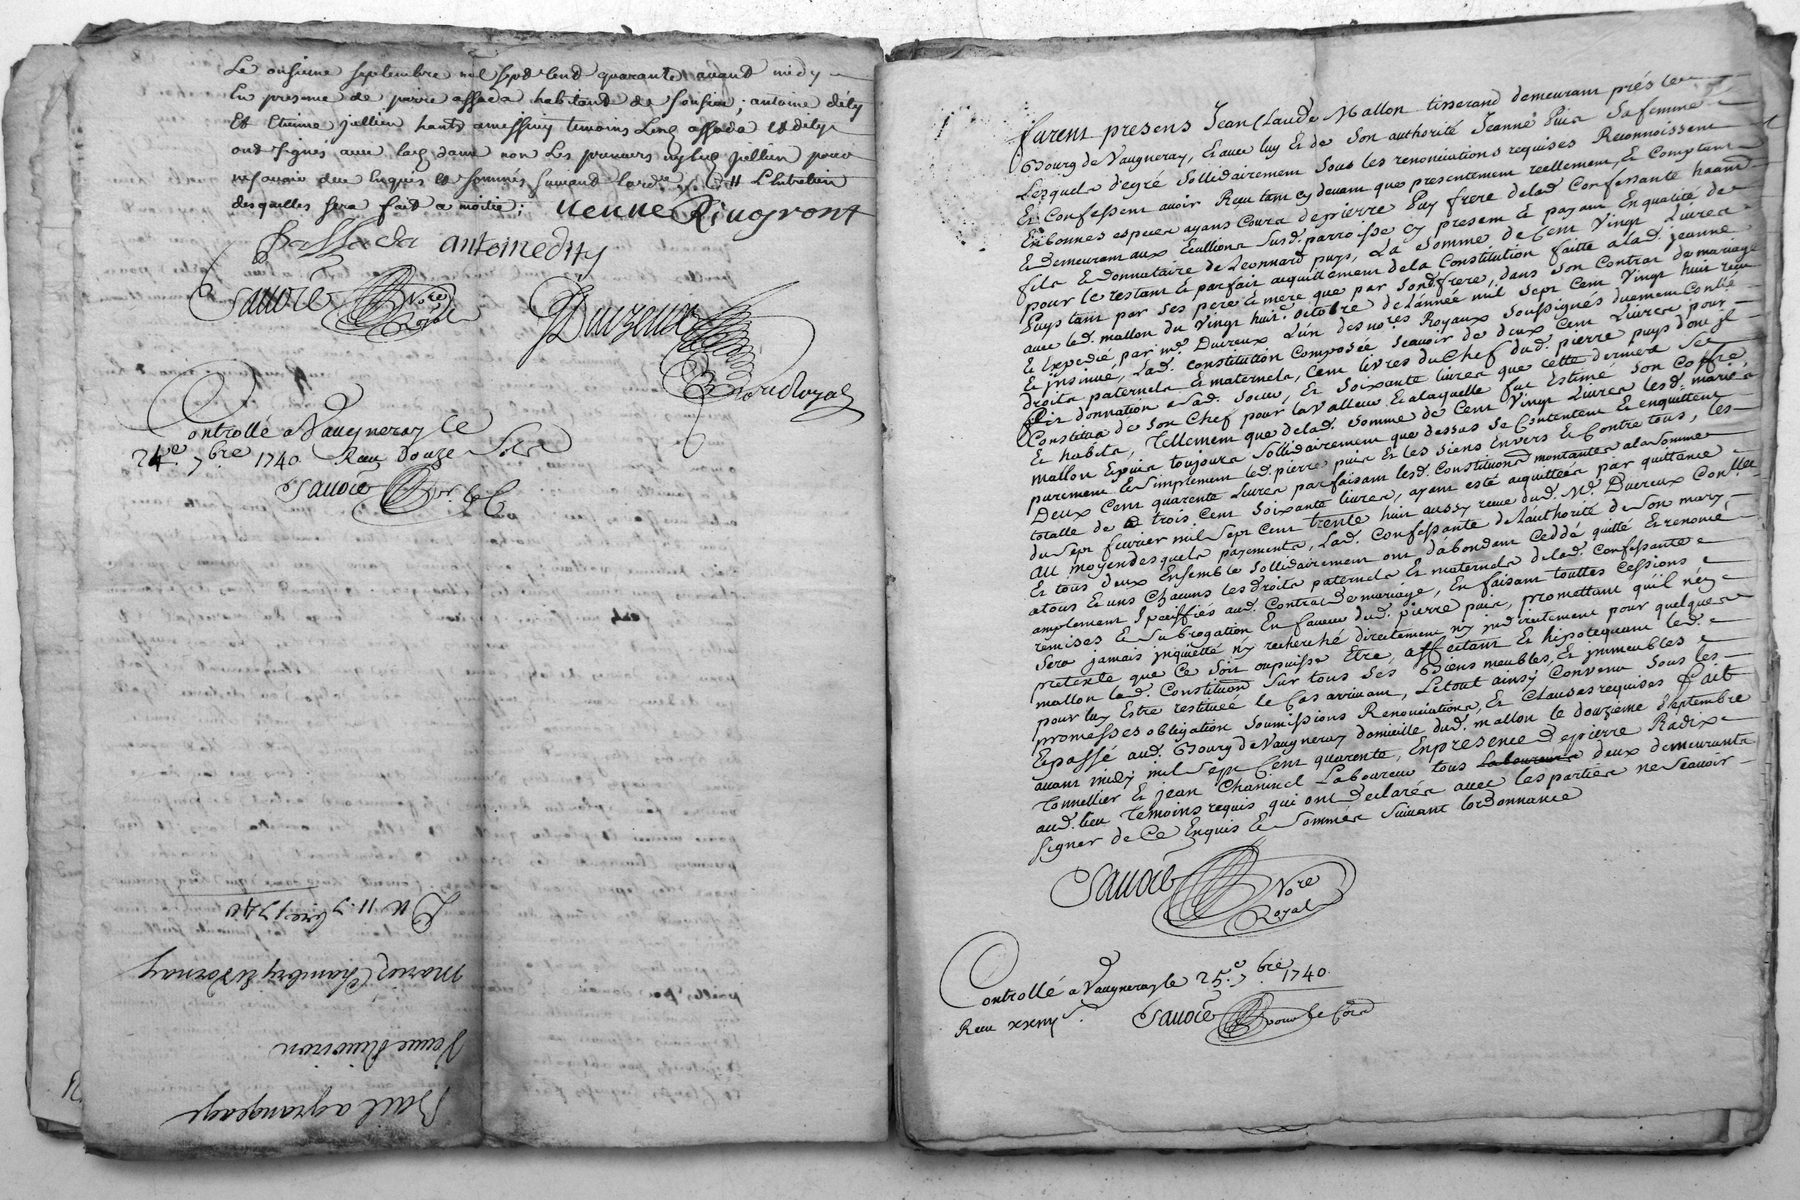 Le onsieme septembre mil sept cent quarante avant midy
En presence de pierre assada habitant de ; antoine dély
Et Etienne jullien hants a messimy temoins Lesq assada et dély
ont signés avec lad. dame non Les preneurs ny led jullien pour
ne scavoir de ce Enquis et sommés suivant lord.ce L'entretien
desquelles sera fait a moitié; veuve Rivoyront
P assada antoine dely
Savoie Nore Royal
Duvzeux
Nore Royal
Controllé a Vaugneray le
24e. 7bre 1740 Reçu Douze sols
Savoie
Bail a grangeage
Veuve Rivoiron
marie, Chambry & Dornay
Du 11. 7bre 1740
furent presens Jean Claude Mallon tisserand demeurant prés le
Bourg de Vaugneray, Et avec luy Et de son authorité Jeanne puis sa femme
Lesquels d'egré sollidairement sous les renonciations requises Reconnoissent
Et Confessent avoir Reçu tant cy devant que presentement reellement, Et Comptant
En bonnes especes ayans Cours de pierre puy frere de lad Confessante haant
Et demeurant aux Ecullions susd. parroisse cy present Et payant En qualité de
fils Et donnataire de Leonnard puys, La somme de Cent Vingt Livres
pour le restant Et parfait acquittement de la Constitution faitte a lad. jeanne
Puys tant par ses pere Et mere que par sond. frere, dans son Contrat de mariage
avec led. mallon du Vingt huit octobre de l'année mil sept Cent Vingt huit reçu
Et Expedié par me. Duvreux L'un des nores Royaux soussignés duement Conllé
Et jnsinué, Lad. constitution Composée scavoir de deux Cent Livres pour
droits paternels Et maternels, Cent livres du Chef dud. pierre puys dont jl
fit donnation a sad. soeur, Et soixante livres que cette derniere se
Constitua de son Chef pour la Valleur Et a laquelle fut Estimé son Coffre
Et habits, Tellement que de lad. somme de Cent Vingt Livres lesd. mariés
mallon Et puis toujours sollidairement que dessus se Contentent Et en quittent
purement Et simplement led. pierre puis Et les siens Envers Et Contre tous, les
Deux Cent quarente Livres parfaisant lesd. Constituons montantes a la somme
totalle de trois Cent soixante livres, ayant esté acquittées par quittance
du sept fevrier mil sept Cent trente huit aussy reçue dud. Me. Duvreux Conllée
Au moyen desquels payements, Lad. Confessante de l'authorité de son mary
Et tous deux Ensemble sollidairement ont d'abondant Ceddé quitté Et renoncé
a tous Et uns Chacuns les droits paternels Et maternels de lad. Confessante
amplement Speciffiés aud. Contrat de mariage, En faisant touttes Cessions
remises Et subrogation En faveur dud. pierre puis, promettant qu'il n'en
sera jamais jnquietté ny recherché directement ny jndirectement pour quelques
pretexte que Ce soit ou puisse Etre affectant Et hipotequant led.
mallon lad. Constituon sur tous ses Biens meubles, Et jmmeubles
pour luy Estre restituée le Cas arrivant, Le tout ainsy Convenu sous les
promesses obligation soumissions Renonciations, Et Clauses requises fait
Et passé aud. Bourg de Vaugneray domicille dud. mallon le douzieme septembre
avant midy mil sept Cent quarente, En presence de pierre Radix
Tonnellier Et Jean Chaninel Laboureur tous Laboureurs deux demeurants
aud. lieu Temoins requis qui ont declarés avec les parties ne scavoir
signer de Ce Enquis Et sommés suivant lordonnance
Savoie Nore Royal
Controllé a Vaugneray le 25.e 7bre 1740
Reçu
Savoie pour le Cors